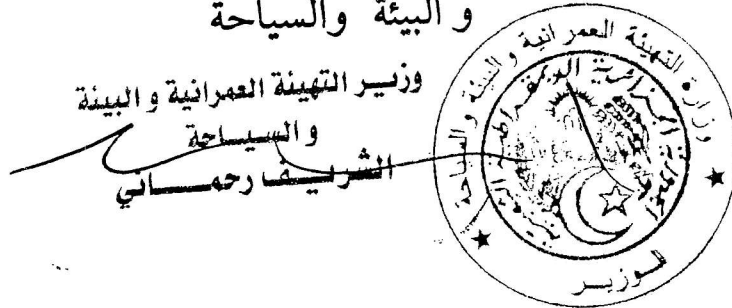 و البيئة والسياحة
وزير التهيئة العمرانية و البيئة
و السياحة
الشريف رحماني
وزارة التهيئة العمرانية و البيئة و السياحة
الجمهورية الجزائرية الديمقراطية الشعبية
الوزير